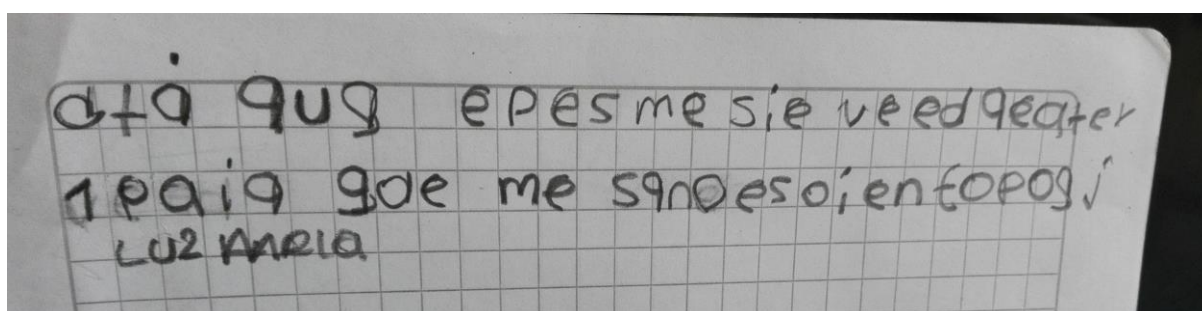 atà qug epesmesie veedqeater
1eaiq goe me sqnoesoientopogi
Luz mela